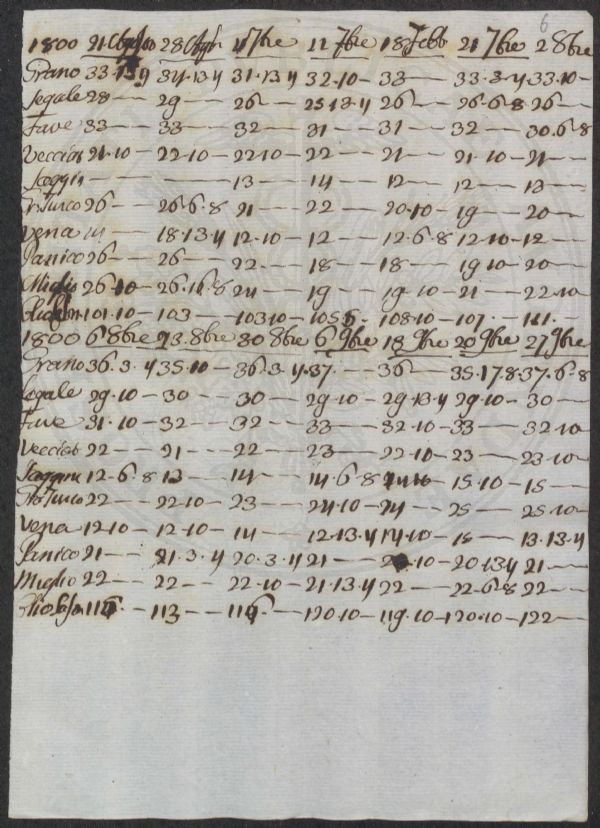 6
1800 21 Agosto 28 Agto 4 7bre 11 7bre 18 7bre 21 7bre 2 8bre
Grano 33·13·4 34·13·4 31·13·4 32·10— 33— 33·3·4 33·10—
Segale 28— 29— 26— 25·13·4 26— 26·6·8 26—
Fave 33— 33— 32— 31— 31— 32— 30·6·8
Veccia 21·10— 22·10— 22·10— 22— 21— 21·10— 21—
Saggin— — 13— 14— 12— 12— 13—
Gr Turco 26— 26·6·8 21— 22— 20·10— 19— 20—
Vena 18·13·4 12·10— 12— 12·6·8 12·10— 12—
Panico 26— 26— 22— 18— 18— 19·10 20—
Miglio 26·10 26·16·8 24— 19— 19·10— 21— 22·10
101·10— 103— 103·10— 105 108·10— 107·— 111·—
1800 6 8bre 23·8bre 30 8bre 6 9bre 13 9bre 20 9bre 27 9bre
Grano 36·3·4 35·10— 36·3·4 37·— 36— 35·17·8 37·6·8
Segale 29·10— 30— 30— 29·10— 29·13·4 29·10— 30—
Fave 31·10— 32— 32— 33— 32·10— 33— 32·10
Veccia 22— 21— 22— 23— 22·10— 23— 23·10—
Saggina 12·6·8 13— 14— 14·6·8 15·10— 15—
Gro Turco 22— 22·10— 23— 24·10— 24— 25— 25·10—
Vena 12·10— 12·10— 14— 12·13·4 14·10— 15— 13·13·4
Panico 21— 21·3·4 20·3·4 21— ·10— 20·13·4 21—
Miglio 22— 22— 22·10— 21·13·4 22— 22·6·8 22—
113— 116— 120·10— 119·10— 120·10— 122—